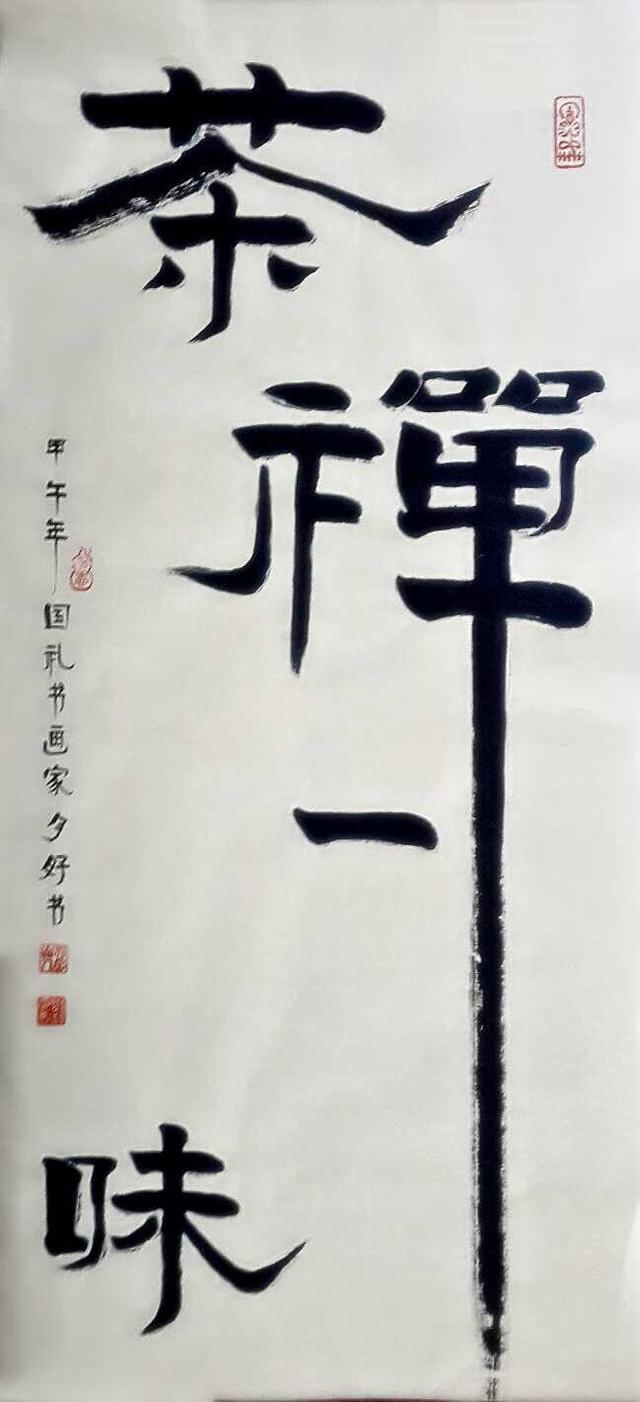 茶
禪
一
味
甲午年国礼书画家夕好书